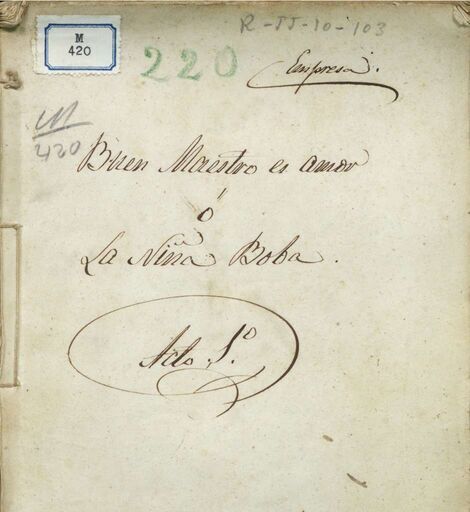 R-II-10-103
M
420
220
Empresa.
M
420
Buen Maestro es amor
ó
La Niña Boba.
Acto 1.º